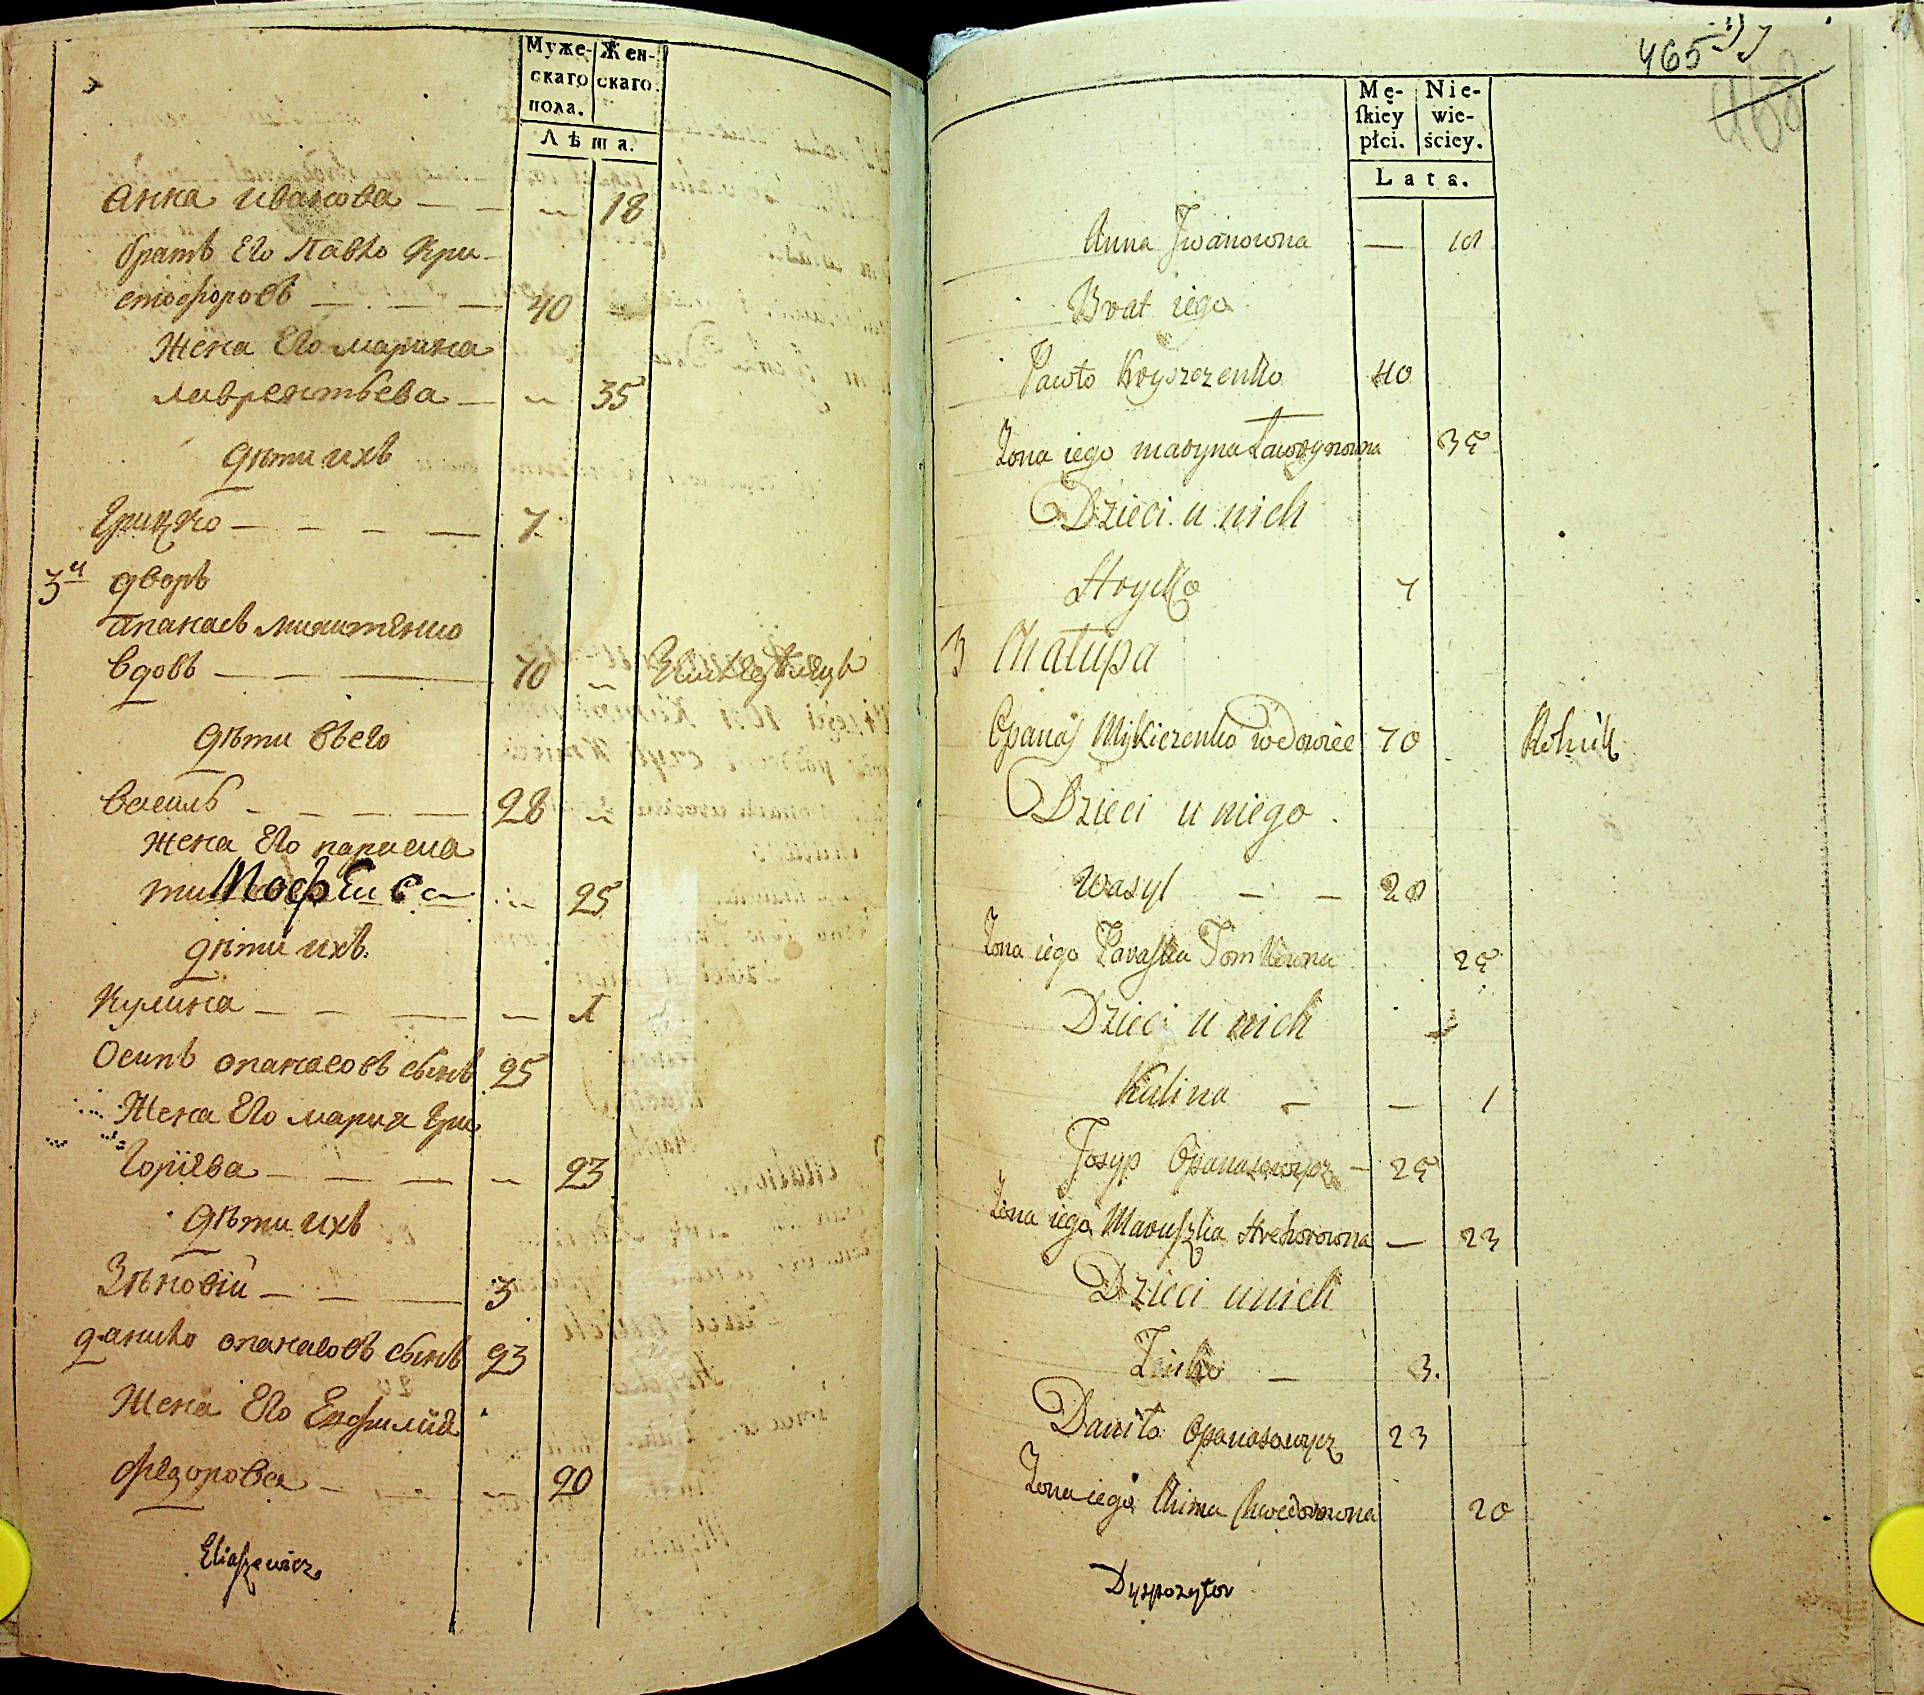 Муже- Жен-
скаго скаго
пола.
Лѣта.
Анна иванова — — 18
братъ Его Павло Хри-
стофоровъ — — — 40
Жена Его марина
лаврентьева — 35
дѣти ихъ
Грицко — — — — 7
3й дворъ
апанасъ микитенко
вдовъ — — — 70
дѣти въего
василь — — — — 28
жена Его параска
25
дѣти ихъ
Кулина — — — — 1
Осипъ опанасовъ сынъ 25
Жена Его мария Гри
горїева — — — — 23
дѣти ихъ
Зѣновїй — — — 3
данило опанасовъ сынъ 23
Жена Его Евфимия
федорова — 20
Eliaszewicz
465
468
Mę- Nie-
skiey wie-
płci. ściey.
Lata.
Anna Jwanowna — 18
Brat iego
Pawło Kryszczenko 40
Żona iego maryna Ławrynowna 35
Dzieci u nich
Hryćko 7
3 Chałupa
Opanas Mykiczenko wdowiec 70 Rolnik
Dzieci u niego
Wasyl — — 28
Żona iego Paraska Tomkowna 25
Dzieci u nich
Kulina — — 1
Josyp Opanasowycz — 25
Żona iego Maruszka Hrehorowna — 23
Dzieci u nich
Zinko — 3.
Daniło Opanasowycz 23
Żona iego Chima Chwedorowna 20
Dyspozytor